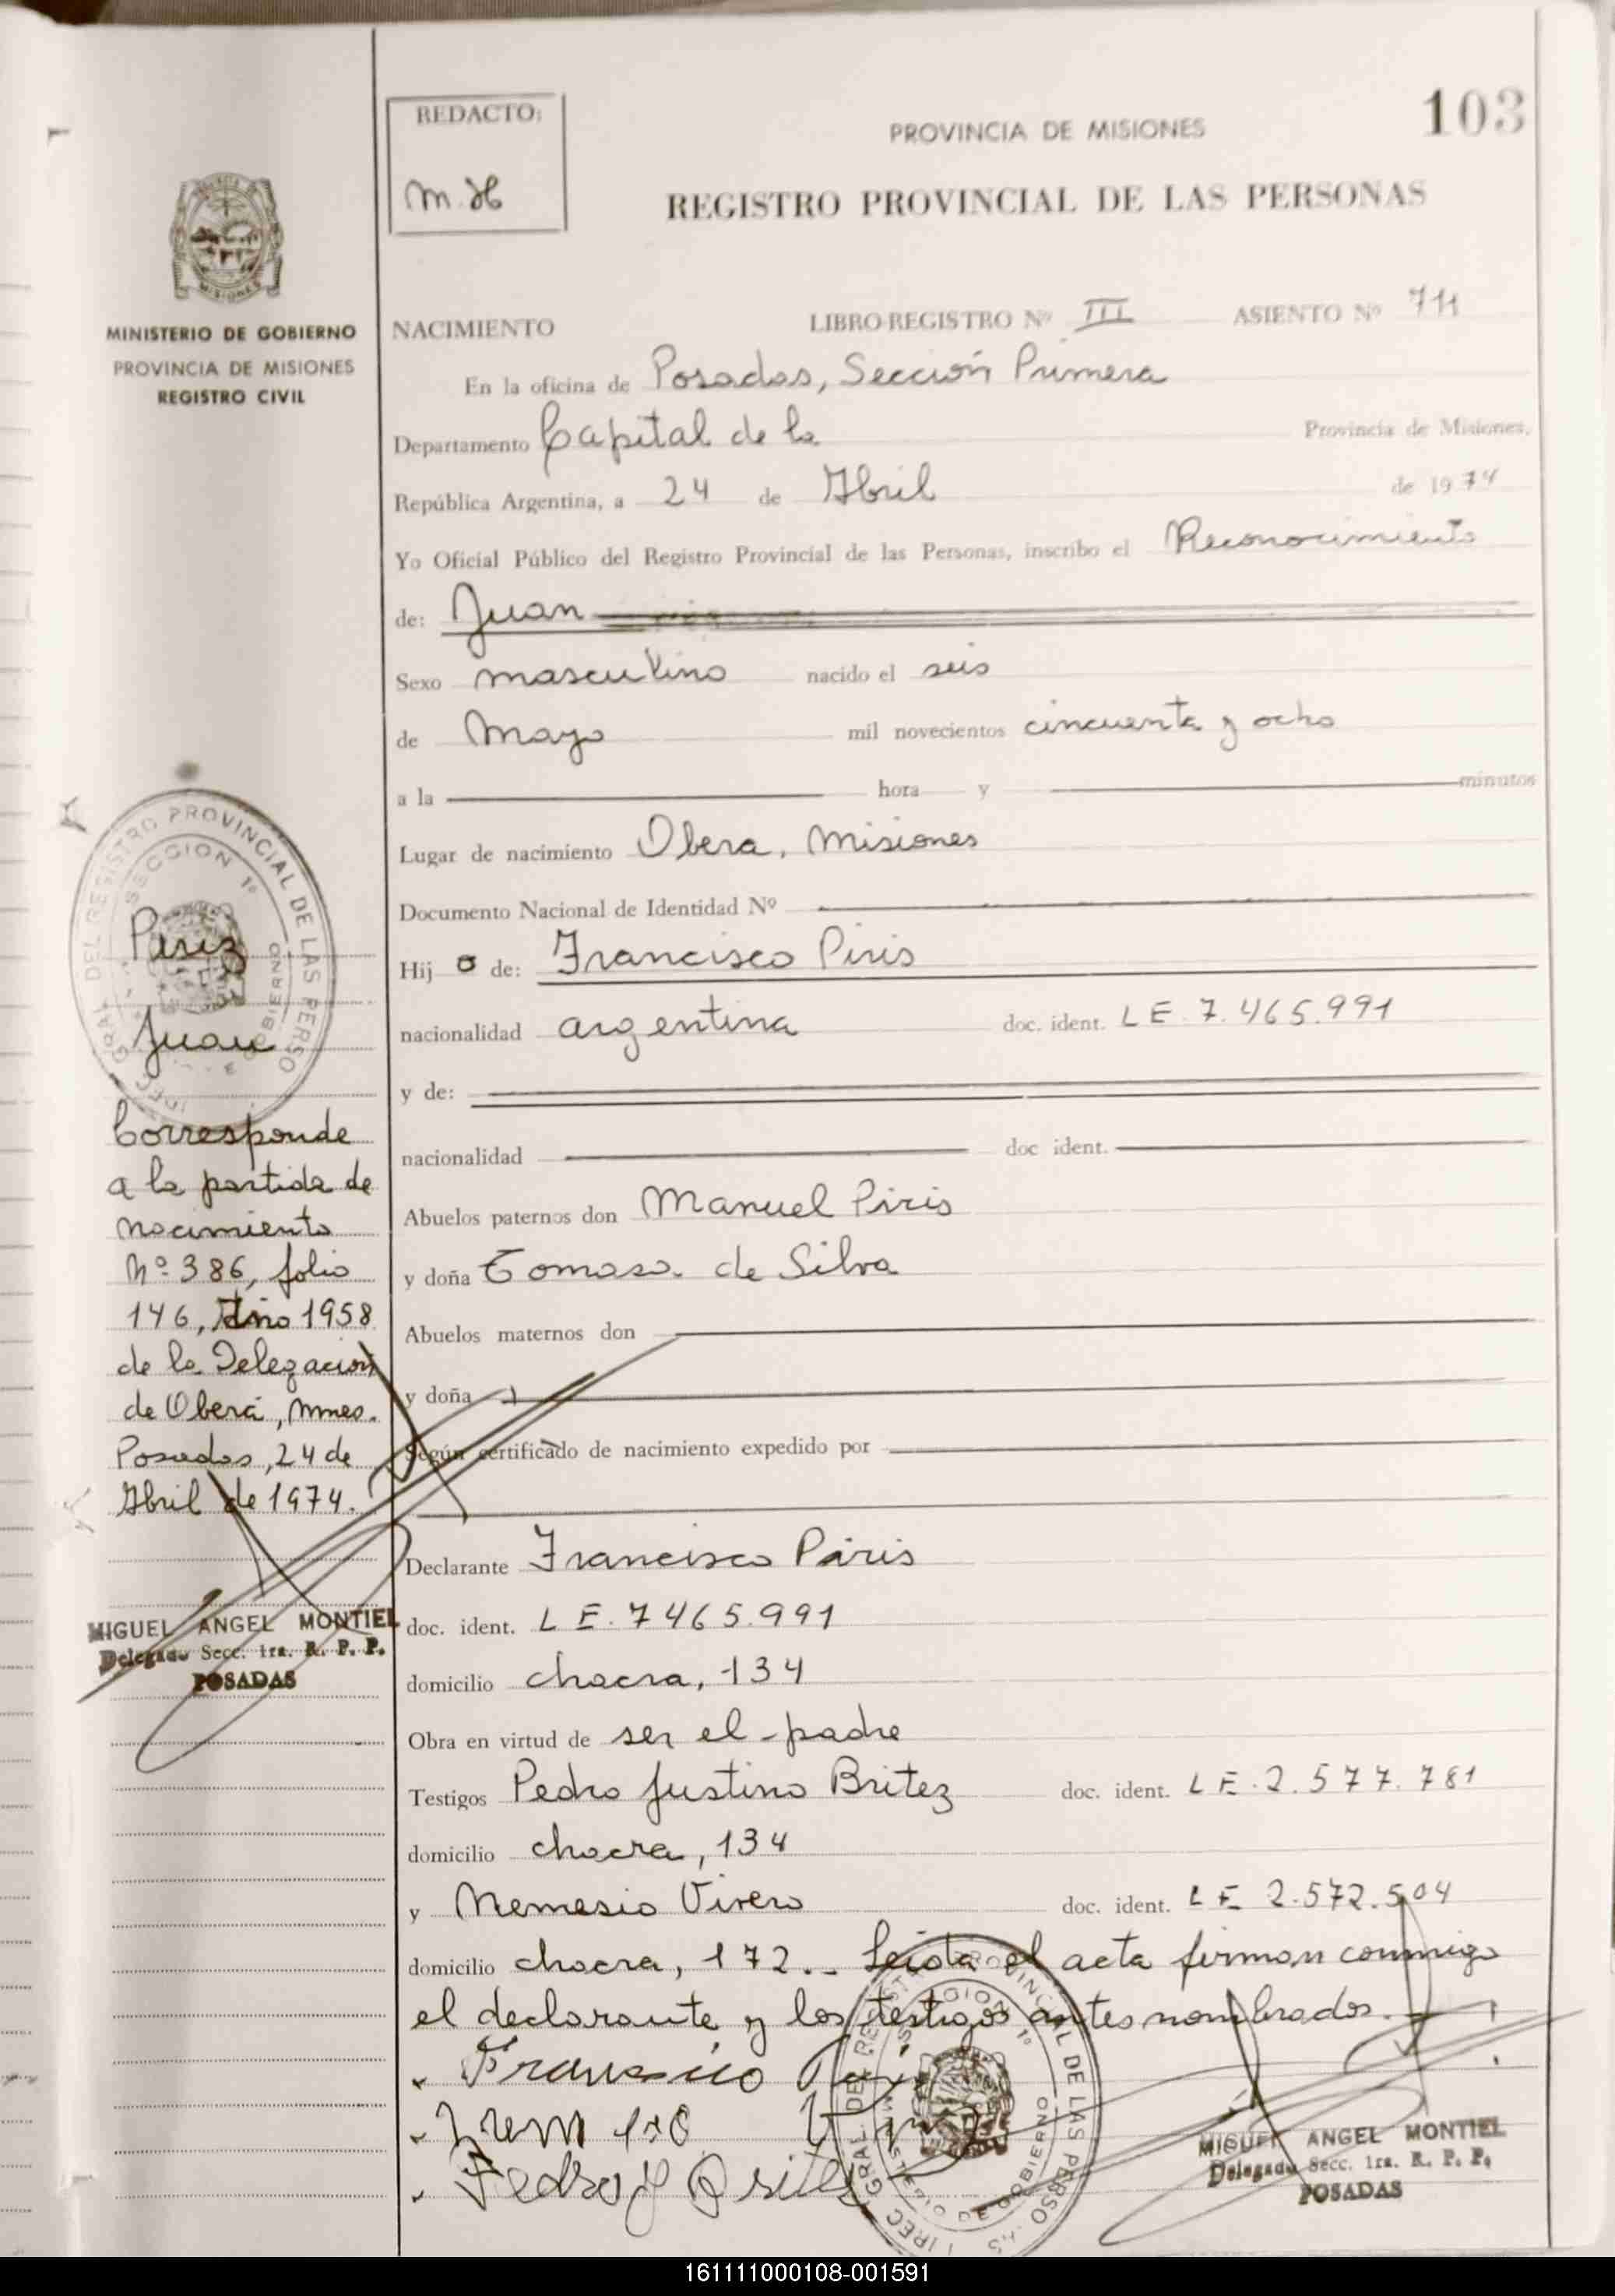 103
REDACTO:
M.H
PROVINCIA DE MISIONES
REGISTRO PROVINCIAL DE LAS PERSONAS
MISIONES
MINISTERIO DE GOBIERNO
PROVINCIA DE MISIONES
REGISTRO CIVIL
NACIMIENTO LIBRO-REGISTRO Nº III ASIENTO Nº 711
En la oficina de Posadas, Sección Primera
Departamento Capital de la Provincia de Misiones,
República Argentina, a 24 de Abril de 1974
Yo Oficial Público del Registro Provincial de las Personas, inscribo el Reconocimiento
de: Juan
Sexo masculino nacido el seis
de Mayo mil novecientos cincuenta y ocho
a la hora y minutos
Lugar de nacimiento Obera, Misiones
Documento Nacional de Identidad Nº
Hijo de: Francisco Piris
nacionalidad argentina doc. ident. LE 7.465.991
y de:
nacionalidad doc ident.
Abuelos paternos don Manuel Piris
y doña Tomasa de Silva
Abuelos maternos don
y doña
Según certificado de nacimiento expedido por
Declarante Francisco Piris
doc. ident. L E. 7465.991
domicilio chacra, 134
Obra en virtud de ser el padre
Testigos Pedro Justino Britez doc. ident. LE.2.577.781
domicilio chacra, 134
y Nemesio Vivero doc. ident. LE 2.572.504
domicilio chacra, 172.. Leida el acta firman conmigo
el declarante y los testigos antes nombrados.
Fransico
Pedro J Brites
MIGUEL ANGEL MONTIEL
Delegado Secc. 1ra. R. P. P.
POSADAS
GRAL DEL REGISTRO PROVINCIAL DE LAS PERSO
SECCION 1º
GOBIERNO
Juan
Corresponde
a la partida de
nacimiento
Nº 386, folio
146, Año 1958
de la Delegación
de Oberá, Mnes.
Posadas, 24 de
Abril de 1974.
MIGUEL ANGEL MONTIEL
Delegado Secc. 1ra. R. P. P.
POSADAS
161111000108-001591